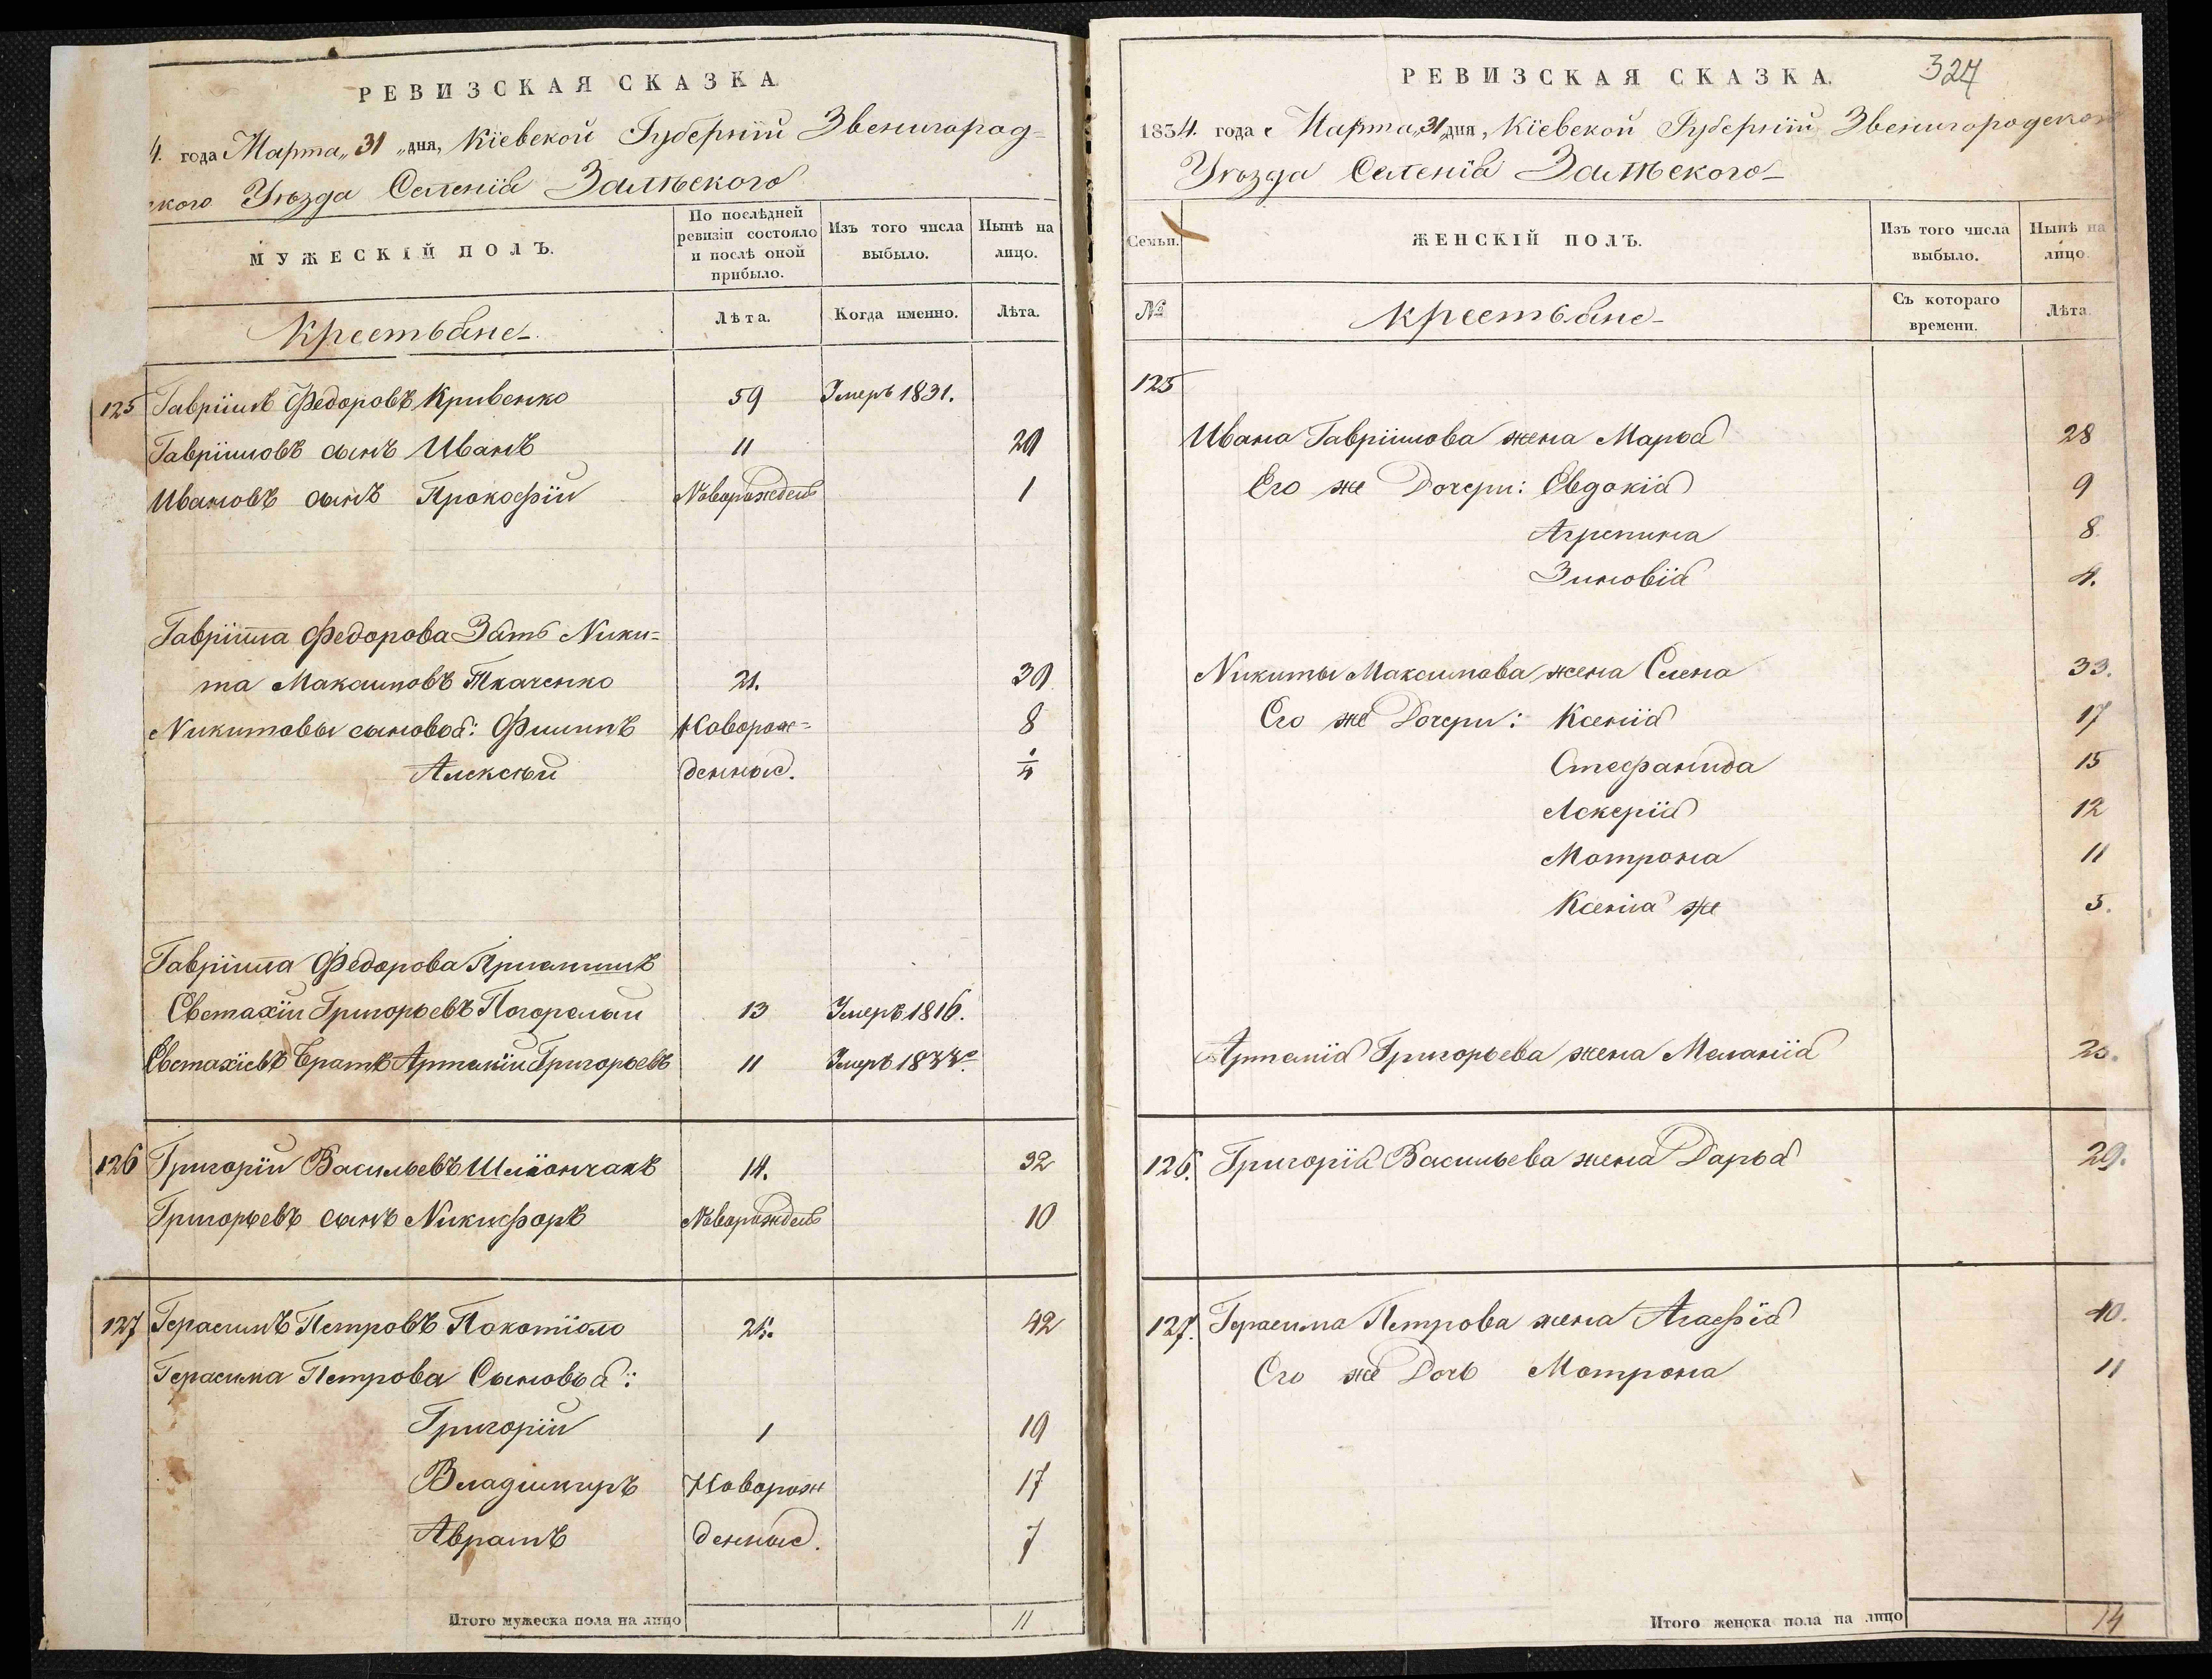 РЕВИЗСКАЯ СКАЗКА
4. года Марта „31 „дня, Кіевской Губерніи Звенигород=
ского Уѣзда Селенія Залѣского
МУЖЕСКІЙ ПОЛЪ.
По послѣдней ревизіи состояло и послѣ оной прибыло.
Изъ того числа выбыло.
Нынѣ на лицо.
Крестьяне
Лѣта.
Когда именно.
Лѣта.
125 Гавріилъ Федоровъ Кривенко 59 Умеръ 1831.
Гавріиловъ сынъ Иванъ 11 29
Ивановъ сынъ Прокофій Новорожденъ 1
Гавріила Федорова Зять Ники=
та Максимовъ Ткаченко 21. 39
Никитовы сыновья: Филипъ Новорож= 8
Алексѣй денные. 1/4
Гавріила Федорова Пріемышъ
Евстахій Григорьевъ Погорелый 13 Умеръ 1816.
Евстахіевъ братъ Артемій Григорьевъ 11 Умеръ
126 Григорій Васильевъ 14. 32
Григорьевъ сынъ Никифоръ Новорожденъ 10
127 Герасимъ Петровъ Покотіоло 42
Герасима Петрова Сыновья:
Григорій 1 19
Владимиръ Новорож 17
Аврамъ денные. 7
Итого мужеска пола на лицо 11
РЕВИЗСКАЯ СКАЗКА. 324
1834. года Марта „31 „дня, Кіевской Губерніи Звенигородского
Уѣзда Селенія Залѣского
Семьи.
ЖЕНСКІЙ ПОЛЪ.
Изъ того числа выбыло.
Нынѣ на лицо.
№
Крестьяне
Съ котораго времени.
Лѣта.
125
Ивана Гавріилова жена Марья 28
Его же Дочери: Евдокія 9
Агрепина 8.
Зиновія 4.
Никиты Максимова жена Елена 33.
Его же Дочери: Ксенія 17
Стефанида 15
Лскерія 12
Мотрона 11
Ксенія же 3.
Артемія Григорьева жена Меланія
126. Григорія Васильева жена Дарья 29.
127. Герасима Петрова жена Агафія 40.
Его же Дочь Мотрона 11
Итого женска пола на лицо 14